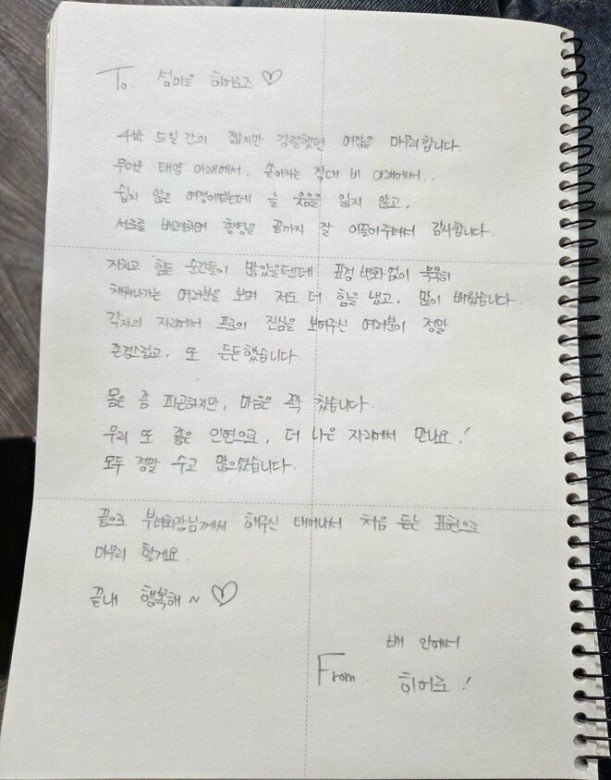 To. 섬마을 히어로즈 ♡
4박 5일간의 짧지만 강렬했던 여정을 마무리합니다.
무더운 태양 아래에서, 쏟아지는 장대 비 아래에서..
쉽지 않은 여정이었는데 늘 웃음을 잃지 않고,
서로를 배려하며 촬영을 끝까지 잘 이끌어주셔서 감사합니다.
지치고 힘든 순간들이 많았을텐데 표정 변화 없이 묵묵히
채워나가는 여러분을 보며 저도 더 힘을 냈고, 많이 배웠습니다.
각자의 자리에서 프로의 진심을 보여주신 여러분이 정말
존경스럽고, 또 든든했습니다
몸은 좀 피곤하지만, 마음은 꽉 찼습니다.
우리 또 좋은 인연으로, 더 나은 자리에서 만나요!
모두 정말 수고 많으셨습니다.
끝으로 부녀회장님께서 해주신 태어나서 처음 듣는 표현으로
마무리 할게요.
끝내 행복해~ ♡
배 안에서
From 히어로!